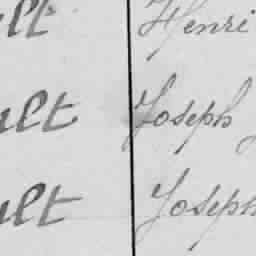 ult Henri
ult Joseph
ult Joseph